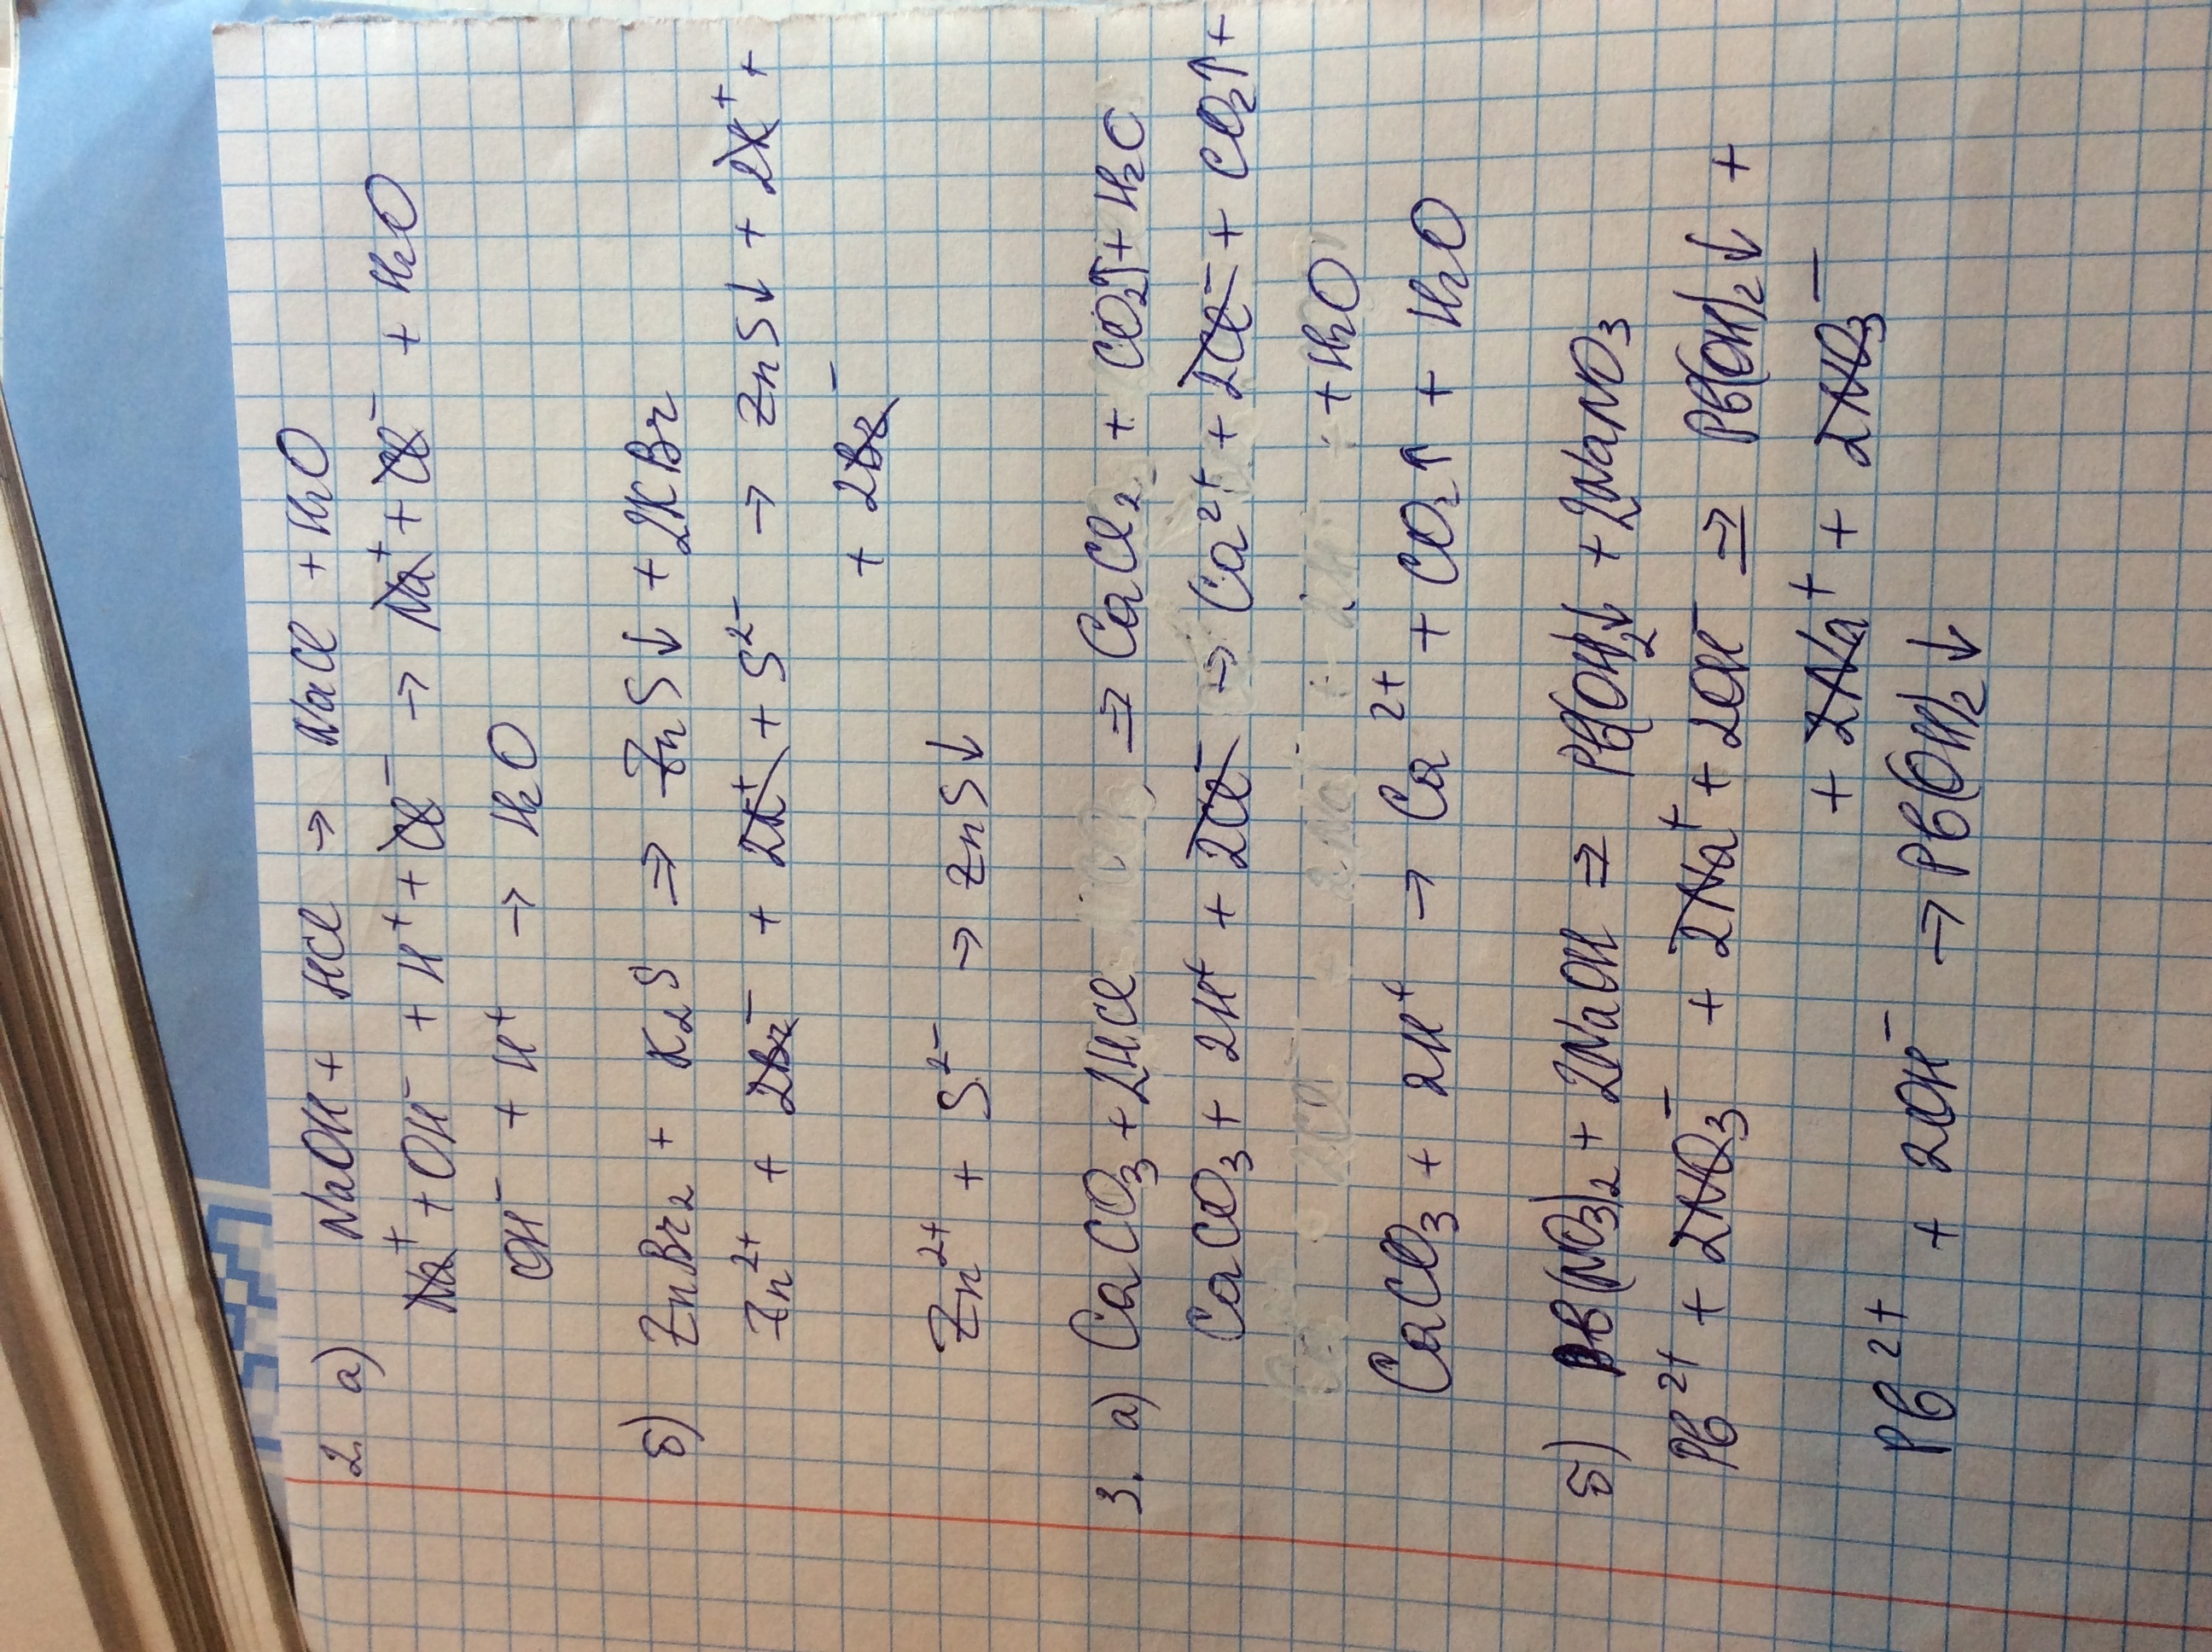 2. а) NaOH + HCl → NaCl + H₂O
Na⁺ + OH⁻ + H⁺ + Cl⁻ → Na⁺ + Cl⁻ + H₂O
OH⁻ + H⁺ → H₂O
б) ZnBr₂ + K₂S ⇒ ZnS↓ + 2KBr
Zn²⁺ + 2Br⁻ + 2K⁺ + S²⁻ → ZnS↓ + 2K⁺ +
+ 2Br⁻
Zn²⁺ + S²⁻ → ZnS↓
3. а) CaCO₃ + 2HCl ⇒ CaCl₂ + CO₂↑ + H₂O
CaCO₃ + 2H⁺ + 2Cl⁻ → Ca²⁺ + 2Cl⁻ + CO₂↑ +
+ H₂O
CaCO₃ + 2H⁺ → Ca²⁺ + CO₂↑ + H₂O
б) Pb(NO₃)₂ + 2NaOH ⇒ Pb(OH)₂↓ + 2NaNO₃
Pb²⁺ + 2NO₃⁻ + 2Na⁺ + 2OH⁻ ⇒ Pb(OH)₂↓ +
+ 2Na⁺ + 2NO₃⁻
Pb²⁺ + 2OH⁻ → Pb(OH)₂↓